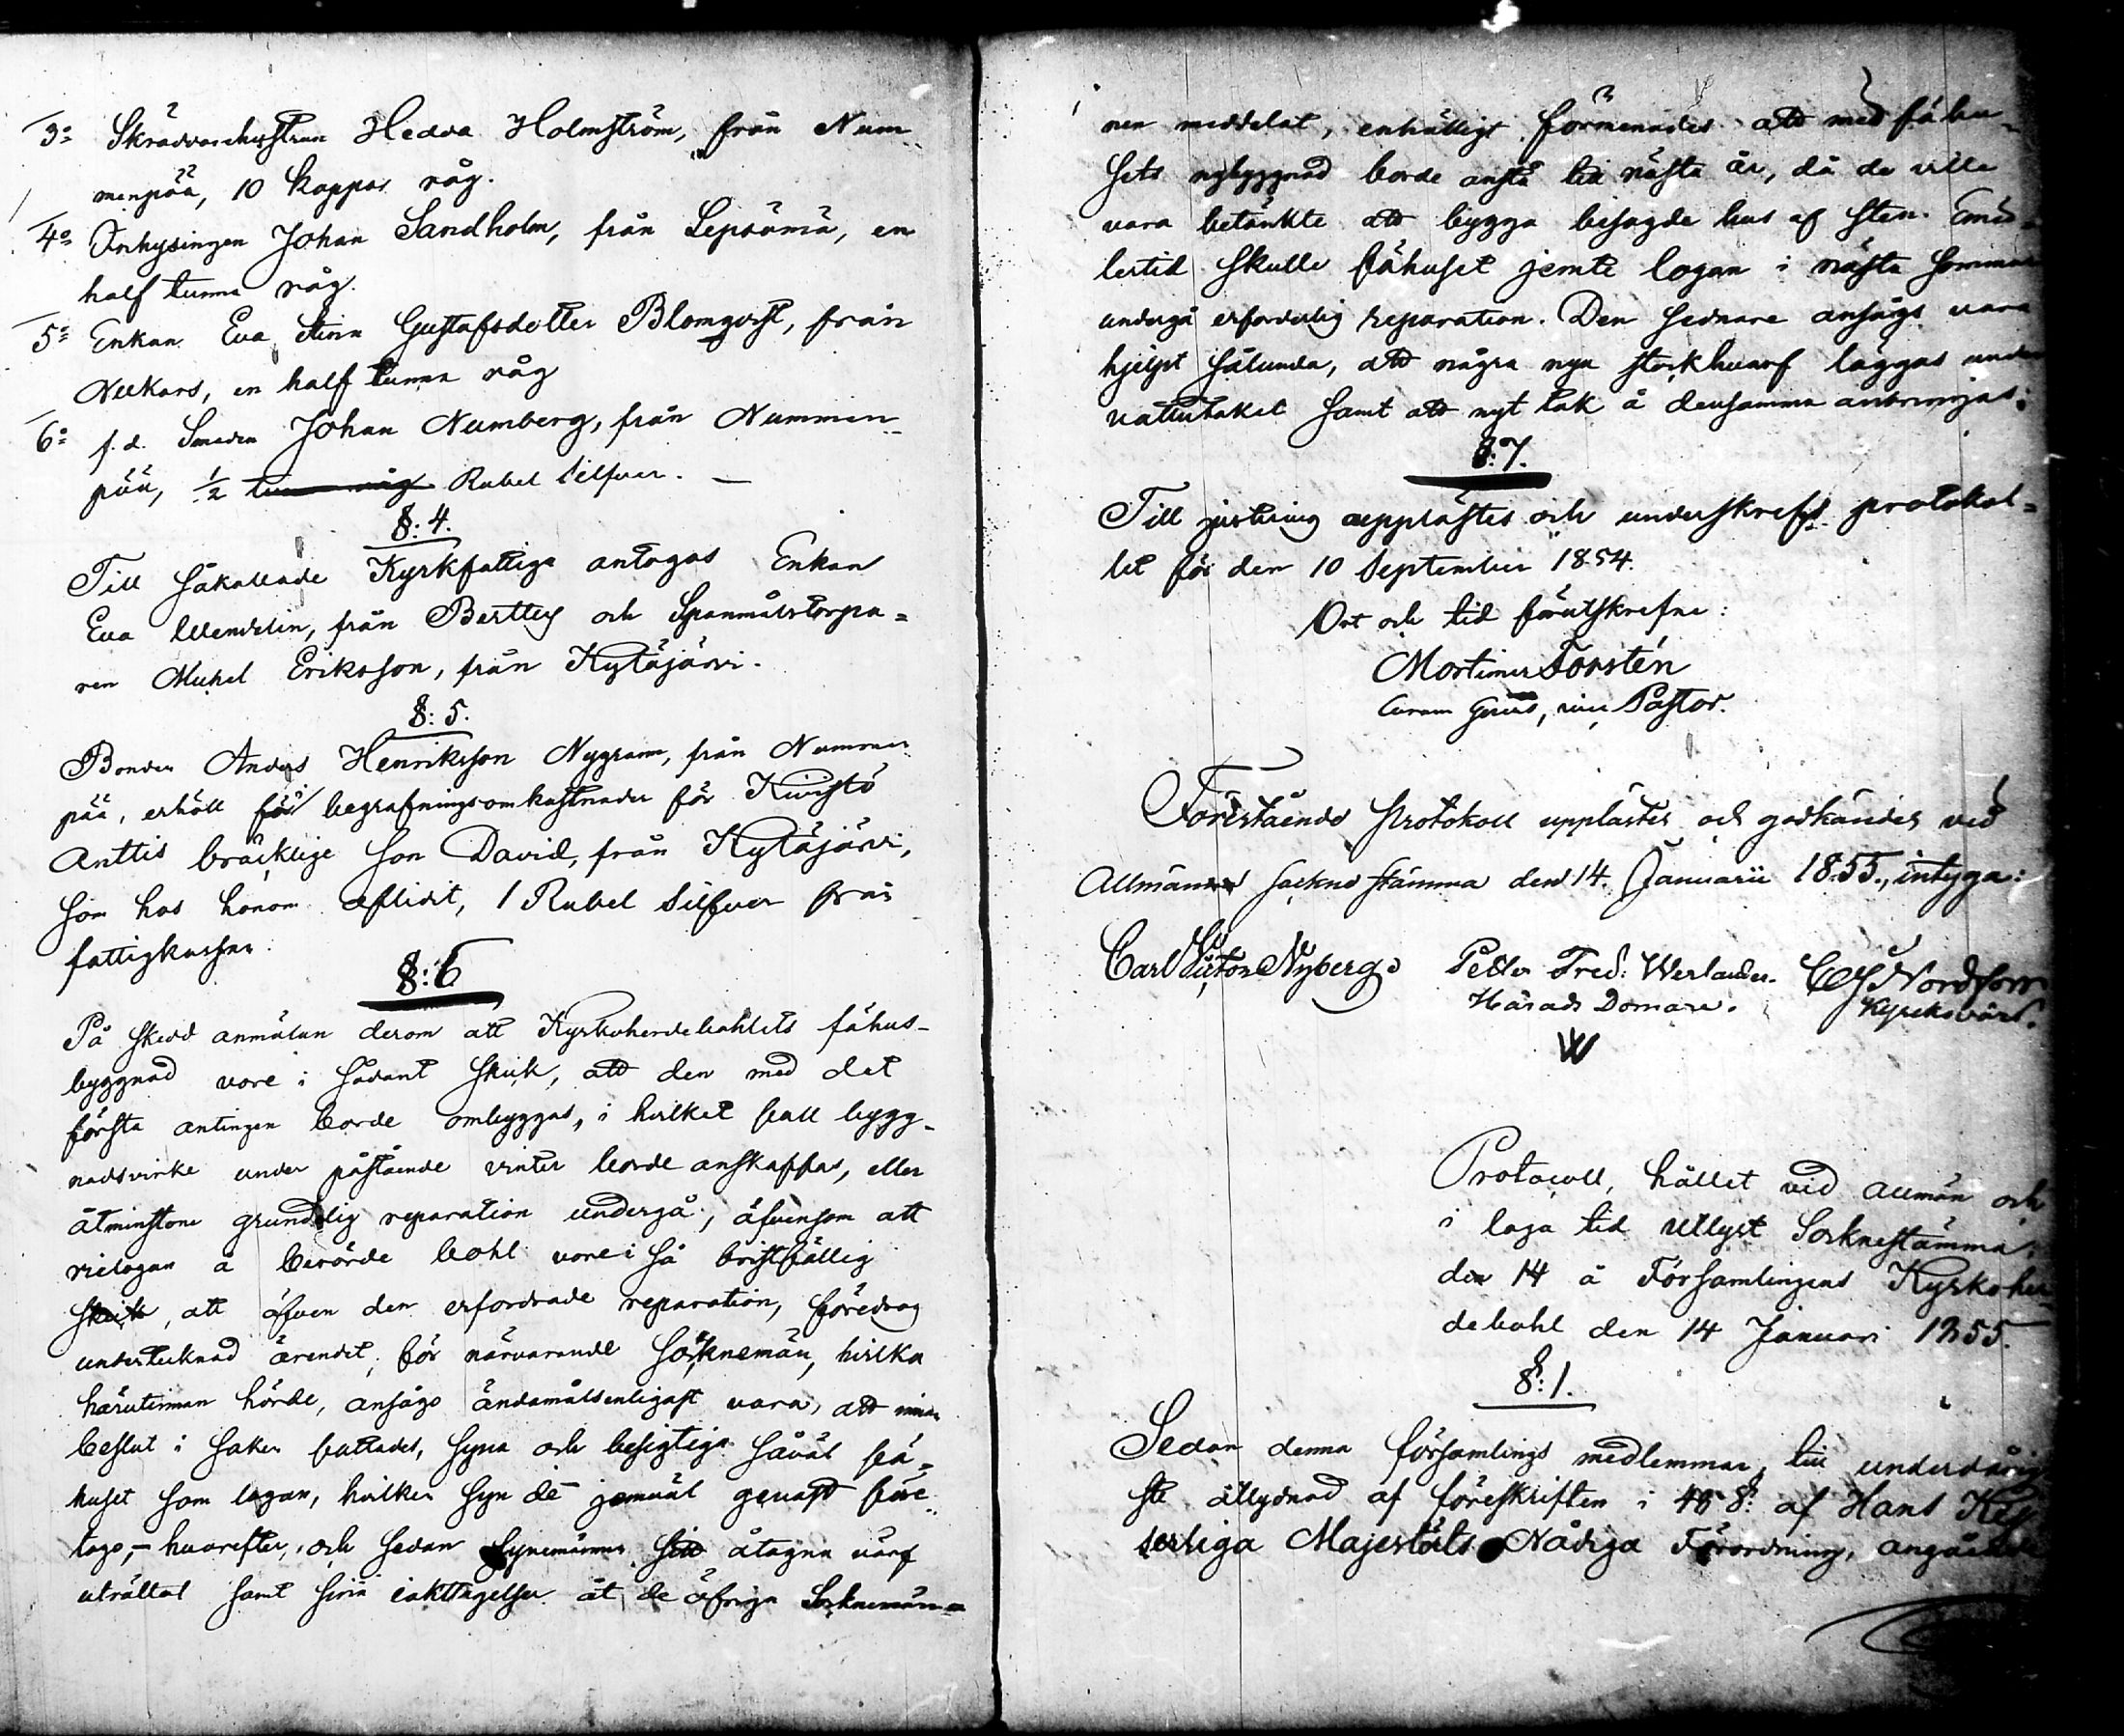 3:o Skräddarehustrun Hedva Holmström, från Num-
menpää, 10 kappar råg.
4:o Inhysingen Johan Sandholm, från Lepsämä, en
half tunna råg.
5:o Enkan Eva Stina Gustafsdotter Blomqvist, från
Nukars, en half tunna råg
6:o f.d. Smeden Johan Numberg, från Nummen-
pää, ½ tunna råg Rubel Silfver. —
§: 4.
Till såkallade Kyrkfattige antogos Enkan
Eva Wendelin, från Bertby och Spanmålstorpa-
ren Mickel Eriksson, från Kytäjärvi.
§: 5.
Bonden Anders Henriksson Nygrann, från Nummen
pää, erhöll för begrafningsomkostnader för Kivistö
Anttis bräcklige son David, från Kytäjärvi,
som hos honom aflidit, 1 Rubel Silfver från
fattigkassan.
§: 6
På skedd anmälan derom att Kyrkoherdebohlets fähus-
byggnad vore i sådant skick, att den med det
första antingen borde ombyggas, i hvilket fall bygg-
nadsvirke under påstående vinter borde anskaffas, eller
åtminstone grundlig reparation undergå, äfvensom att
rielogan å berörde bohl vore i så bristfällig
skick, att äfven den erfordrade reparation, föredrog
undertecknad ärendet för närvarande Socknemän, hvilka
härutinnan hörde, ansågo ändamålsenligast vara, att innan
beslut i saken fattades, syna och besigtiga såväl fä-
huset som logan, hvilken syn de jemväl genast före-
togo, – hvarefter, och sedan Synemännen sitt åtagna värf
uträttat samt sina iakttagelser åt de öfriga Socknemän-
nen meddelat, enhälligt förmenades att med fähu-
sets nybyggnad borde anstå till nästa år, då de ville
vara betänkte att bygga besagde hus af sten. Emed-
lertid skulle fähuset jemte logan i nästa sommar
undergå erforderlig reparation. Den sednare ansågs vara
hjelpt sålunda, att några nya stockhvarf läggas under
vattutaket samt att nytt tak å densamma anbringas.
§: 7.
Till justering upplästes och underskrefs protokol-
let för den 10 September 1854.
Ort och tid förutskrefne:
Mortimer Forstén
Curam Gerens, vice Pastor.
Förestående Protokoll upplästes och godkändes vid
Allmänna Sockne stämma den 14. Januarii 1855., intyga:
Carl Victor Nyberg Petter Fred: Werlander. C G Nordfors
Härads Domare. Kyrkovärd.
W
Protocoll, hållet vid allmän och
i laga tid utlyst Sockneståmma
den 14 å Församlingens Kyrkoher-
debohl den 14 Januari 1855.
§: 1.
Sedan denna församlings medlemmar, till underdånig
ste åtlydnad af föreskriften i 48 §: af Hans Kej
serliga Majestäts Nådiga Förordning, angående